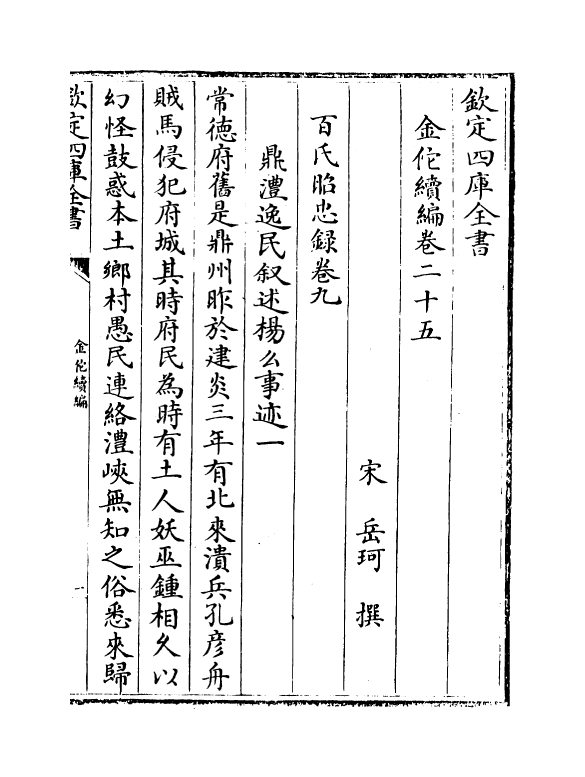 欽定四庫全書
金佗續編卷二十五
宋　岳珂　撰
百氏昭忠録卷九
鼎澧逸民叙述楊么事迹一
常德府舊是鼎州昨於建炎三年有北來潰兵孔彦舟
賊馬侵犯府城其時府民為時有土人妖巫鍾相久以
幻怪鼓惑本土鄉村愚民連絡澧峽無知之俗悉來歸
欽定四庫全書
金佗續編
一